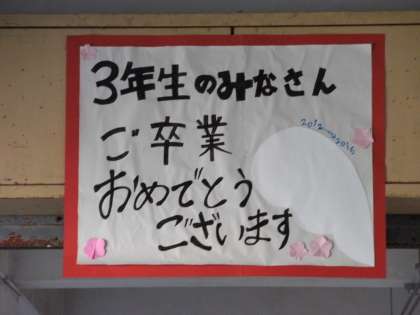 3年生のみなさん
ご卒業
おめでとう
ございます
2012〜2015